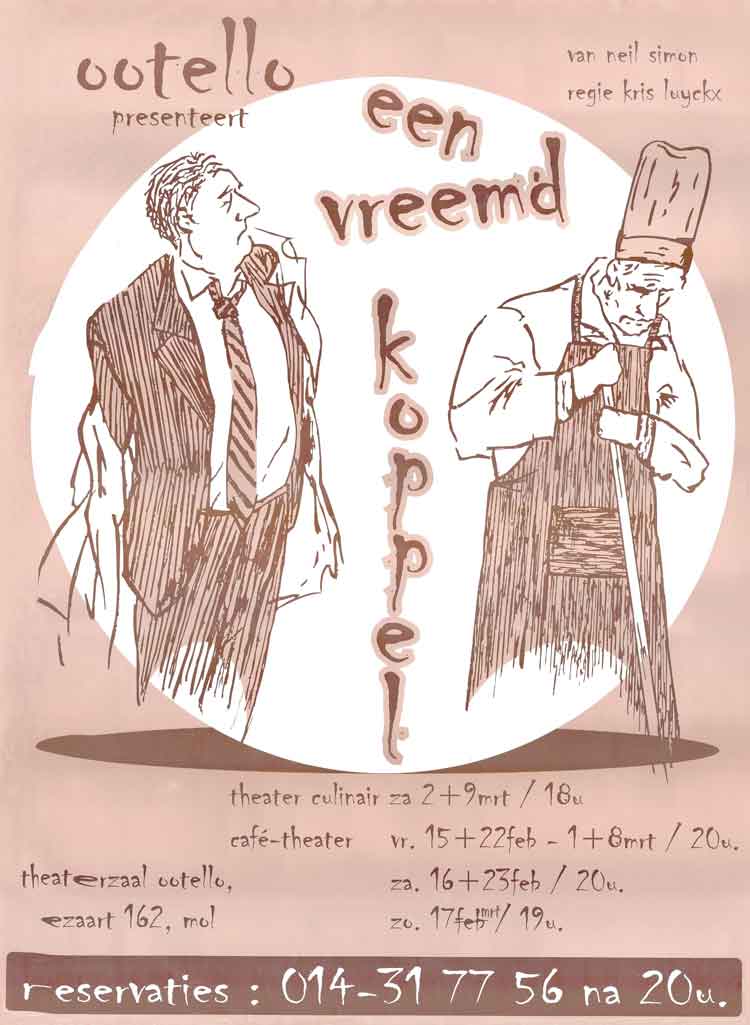 ootello
presenteert
van neil simon
regie kris luyckx
een
vreemd
koppel
theater culinair za 2+9mrt / 18u
café-theater vr. 15+22feb - 1+8mrt / 20u.
theaterzaal ootello, za. 16+23feb / 20u.
ezaart 162, mol zo. 17feb mrt/ 19u.
reservaties : 014-31 77 56 na 20u.